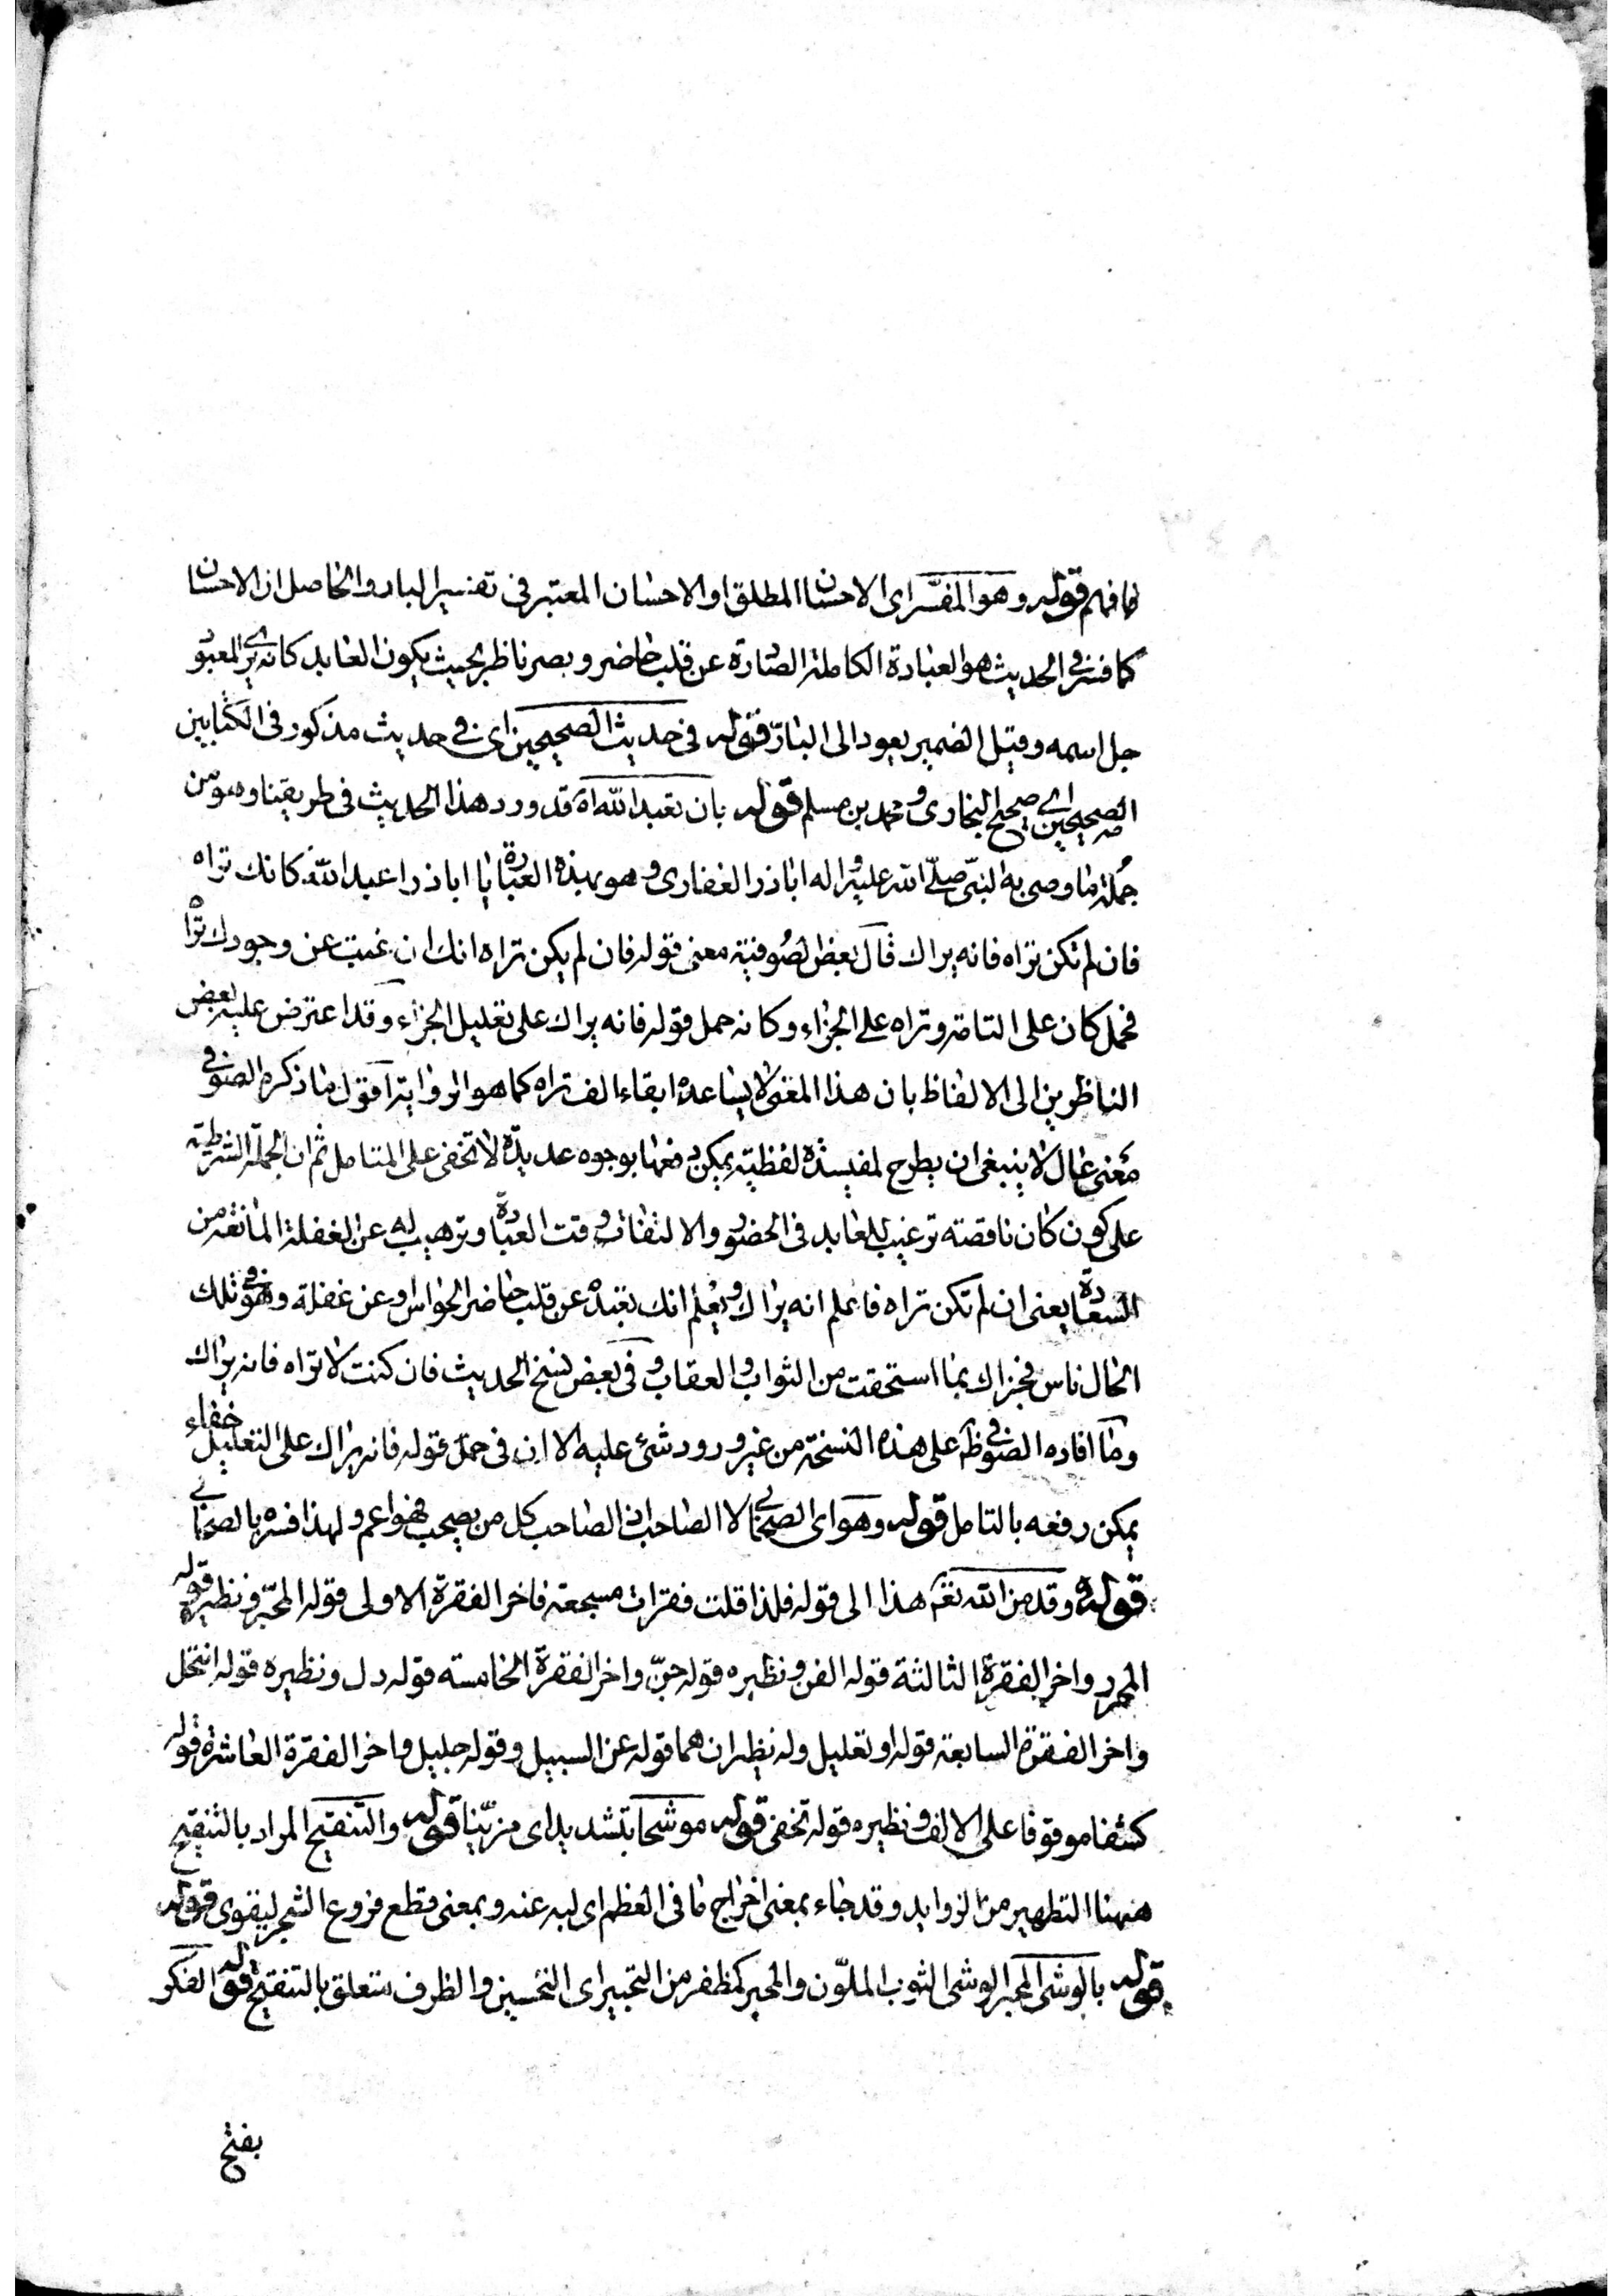 فافهم قوله وهو المفسر اى الاحسان المطلق او الاحسان المعتبر فى تفسير البار والحاصل ان الاحسان
كما فسر فى الحديث هو العبادة الكاملة الصادرة عن قلب حاضر وبصر ناظر بحيث يكون العابد كانه يرى المعبود
جل اسمه وقيل الضمير يعود الى البارّ قوله فى حديث الصحيحين اى فى حديث مذكور فى الكتابين
الصحيحين اى صحيح البخارى ومحمد بن مسلم قوله بان تعبد الله اه قد ورد هذا الحديث فى طريقنا وهو من
جملة ما وصى به النبى صلى الله عليه واله اباذر الغفارى وهو بهذه العبارة يا اباذر اعبد الله كانك تراه
فان لم تكن تراه فانه يراك قال بعض الصوفية معنى قوله فان لم يكن تراه انك ان غبت عن وجودك تراه
فحمل كان على التامة وتراه على الجزاء وكانه حمل قوله فانه يراك على تعليل الجزاء وقد اعترض عليه بعض
الناظرين الى الالفاظ بان هذا المعنى لا يساعده ابقاء الف تراه كما هو الرواية اقول ما ذكره الصوفى
معنى عال لا ينبغى ان يطرح لمفسدة لفظية يمكن دفعها بوجوه عديدة لا تخفى على المتامل ثم ان الجملة الشرطية
على كون كان ناقصته ترغيب للعابد فى الحضور والالتفات وقت العبادة وترهيب له عن الغفلة المانعة من
السعادة يعنى ان لم تكن تراه فاعلم انه يراك ويعلم انك تعبده عن قلب حاضر الحواس او عن غفلة وهو فى تلك
الحال ناس فيجزاك بما استحقت من الثواب والعقاب وفى بعض نسخ الحديث فان كنت لا تراه فانه يراك
وما افاده الصوفى ظ على هذه النسخة من غير ورود شئ عليه الا ان فى حمل قوله فانه يراك على التعليل خفاء
يمكن رفعه بالتامل قوله وهو اى الصحابى لا الصاحب اذ الصاحب كل من يصحب فهو اعم ولهذا فسره بالصحابى
قوله وقد من الله تعم هذا الى قوله فلذا قلت فقرات مسجعة فاخر الفقرة الاولى قوله المحبر ونظيره قوله
المحرر واخر الفقرة الثالثة قوله الفن ونظيره قوله جنّ واخر الفقرة الخامسة قوله دل ونظيره قوله انتحل
واخر الفقرة السابعة قوله او تعليل وله نظيران هما قوله عن السبيل وقوله جليل واخر الفقرة العاشرة قوله
كشفا موقوفا على الالف ونظيره قوله تخفى قوله موشحا بتشديد اى مزيّنا قوله والتنقيح المراد بالتنقيح
ههنا التطهير من الزوايد وقد جاء بمعنى اخراج ما فى العظم اى لبه عنه وبمعنى قطع فروع الشجر ليقوى قوله
قوله بالوشى المحبر الوشى الثوب الملوّن والمحبر كمظفر من التحبير اى التحسين والظرف متعلق بالتنقيح قوله الفكر
بفتح